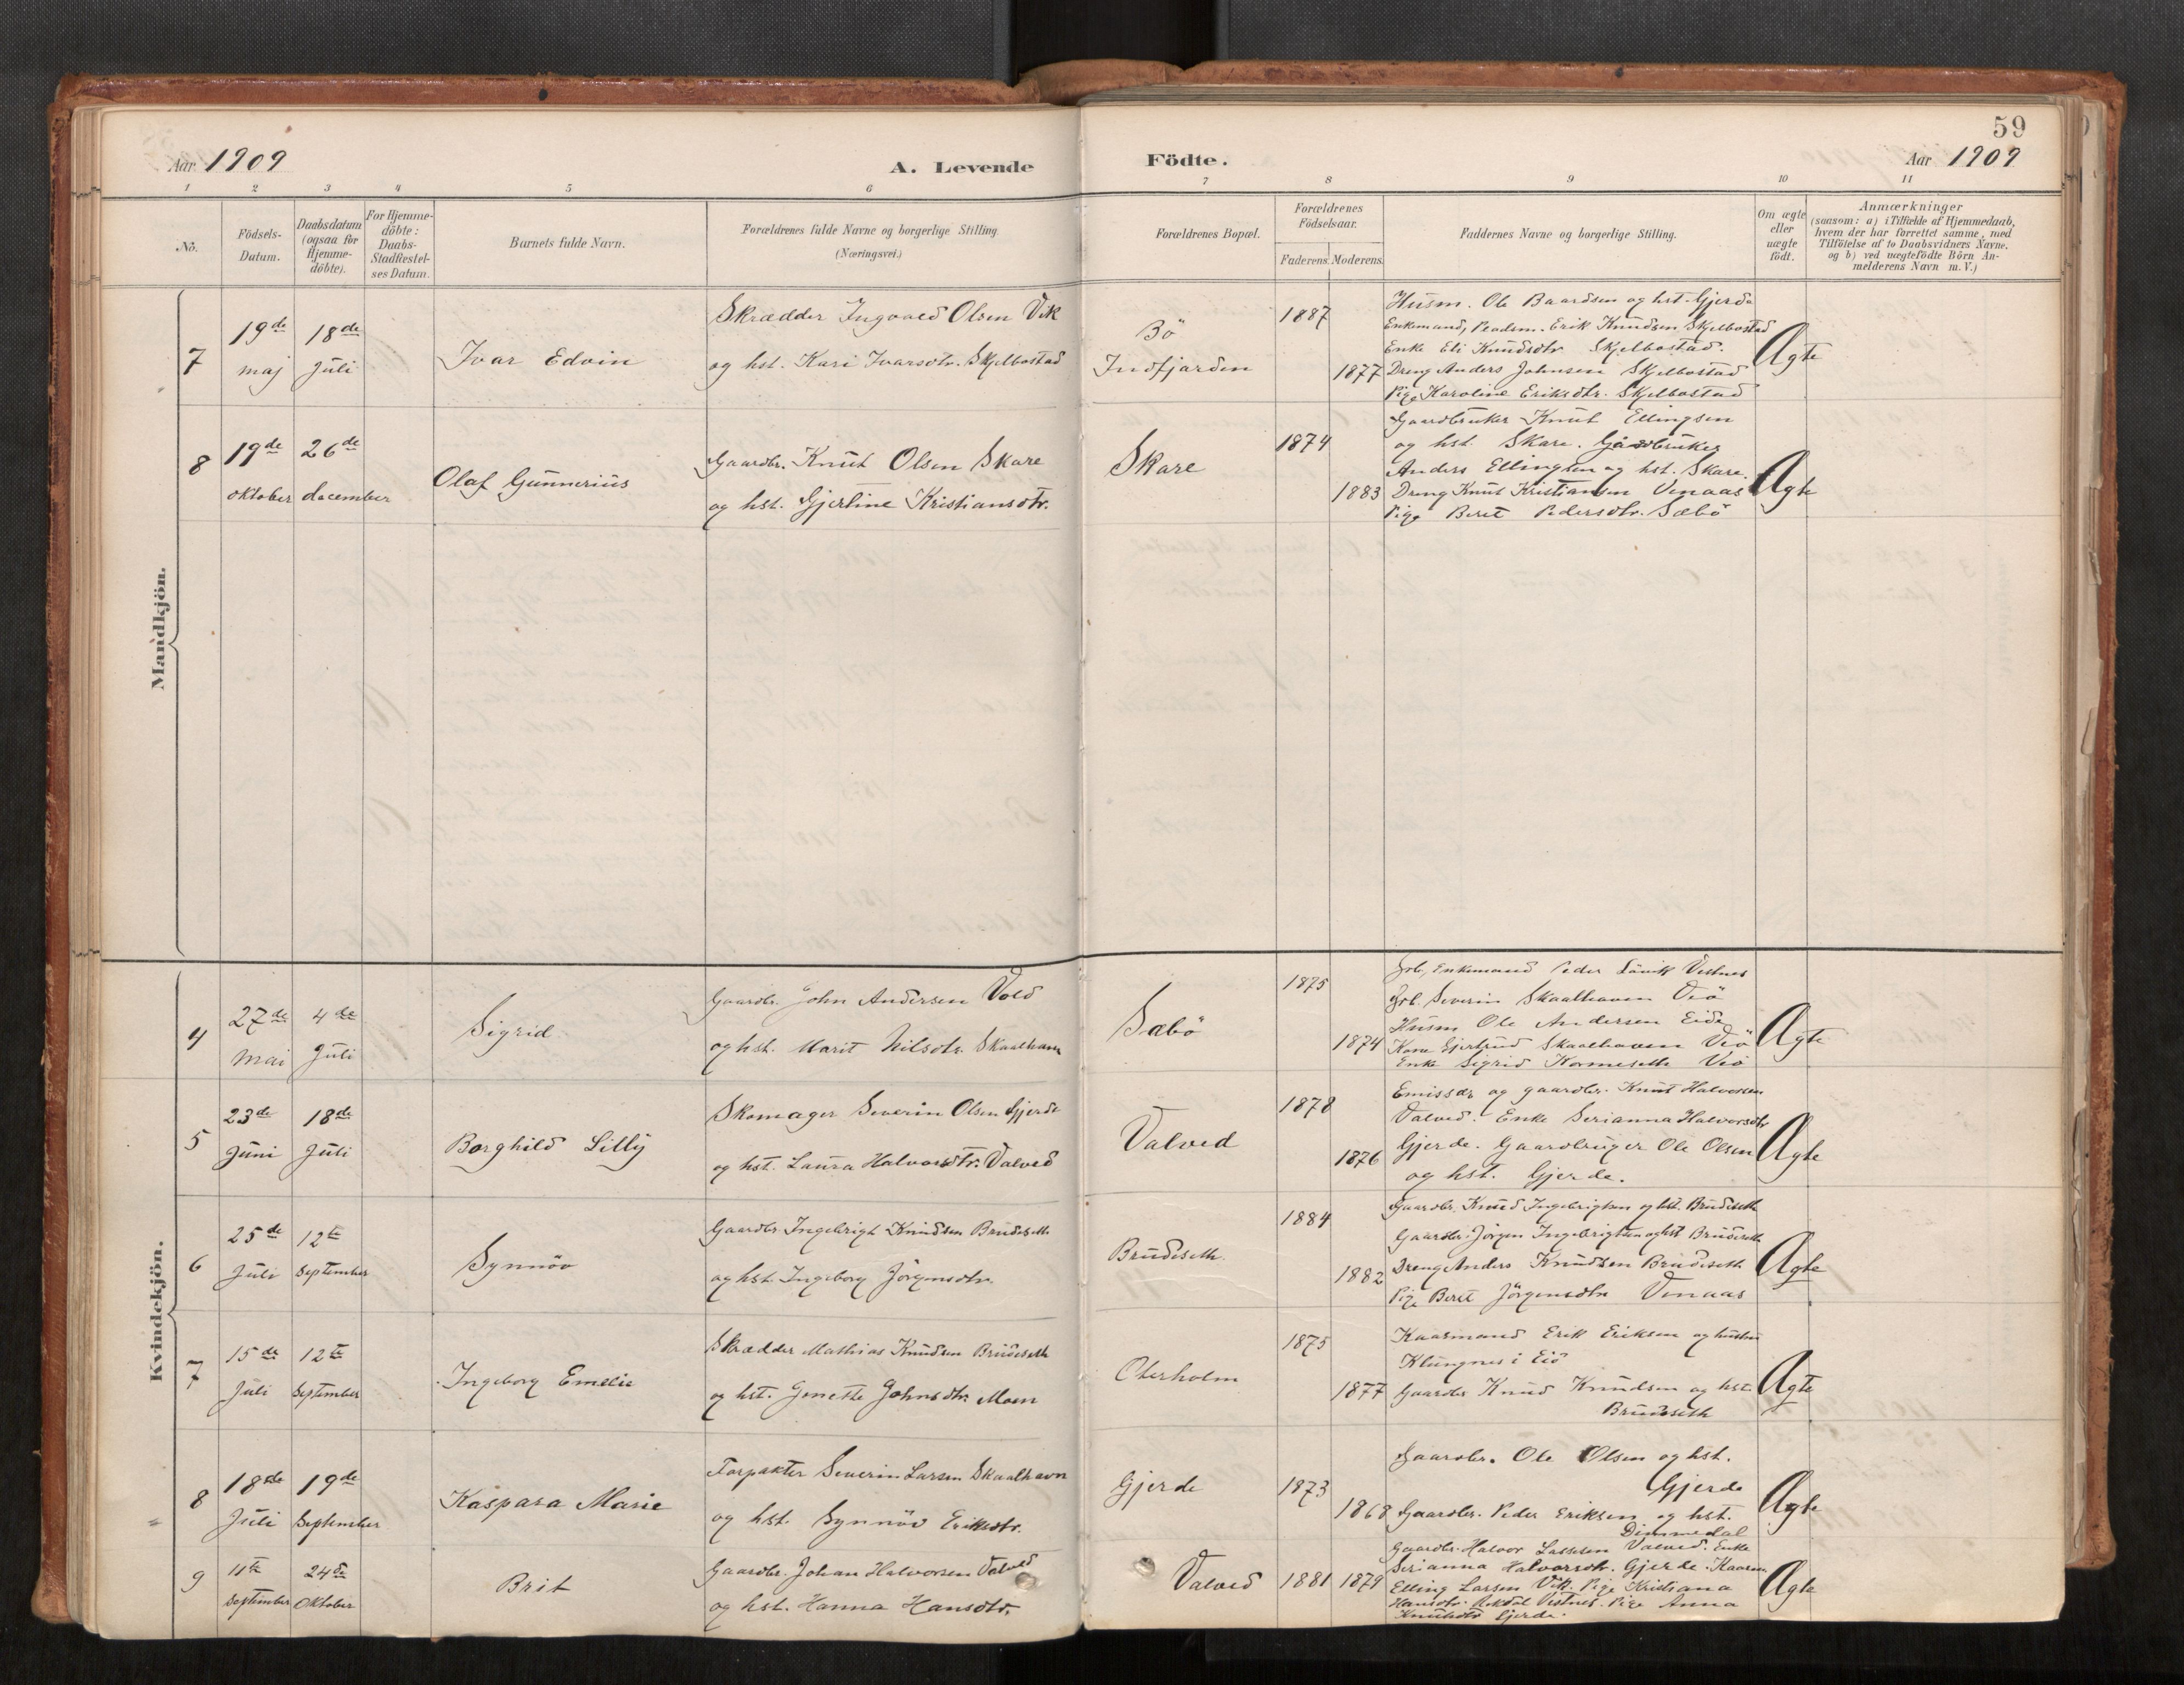 59
Aar 1909
A. Levende
Födte.
Aar 1909
1 2 3 4 5 6 7 8 9 10 11
No.
Födsels-
Datum.
Daabsdatum
(ogsaa for
Hjemme-
döbte).
For Hjemme-
döbte:
Daabs-
Stadfestel-
ses Datum.
Barnets fulde Navn.
Forældrenes fulde Navne og borgerlige Stilling
(Næringsvei.)
Forældrenes Bopæl.
Forældrenes
Födselsaar.
Faderens. Moderens.
Faddernes Navne og borgerlige Stilling.
Om ægte
eller
uægte
födt.
Anmærkninger
(saasom: a) i Tilfælde af Hjemmedaab,
hvem der har forrettet samme, med
Tilföielse af to Daabsvidners Navne.
og b) ved uægtefödte Börn An-
melderens Navn m. V.)
Mandkjön.
7
19de
maj
18de
Juli
Ivar Edvin
Skrædder Ingvald Olsen Vik
og hst. Kari Ivarsdtr. Skjelbostad
Bö
Indfjorden
1887
1877
Husm. Ole Baardsen og hst. Gjerde
Enkemand, Erik Knudsen Skjelbostad
Enke Eli Knudsdtr Skjelbostad.
Dreng Anders Johnsen Skjelbostad
Pige Karoline Eriksdtr. Skjelbostad
Ægte
8
19de
oktober
26de
december
Olaf Gunnerius
Gaardbr. Knut Olsen Skare
og hst. Gjertine Kristiansdtr.
Skare
1874
1883
Gaardbruker Knut Ellingsen
og hst. Skare. Gaardbruker
Anders Ellingsen og hst. Skare.
Dreng Knut Kristiansen Venaas
Pige Beret Pedersdtr. Sæbö
Ægte
Kvindekjön.
4
27de
mai
4de
Juli
Sigrid
Gaardbr. John Andersen Vold
og hst. Marit Nilsdtr. Skaalhavn
Sæbö
1875
1874
Enkemand Peder Vestnes
Severin Skaalhavn Veö
Husm Ole Andersen Eide
Kone Gjertrud Skaalhavn Veö
Enke Sigrid Veö
Ægte
5
23de
Juni
18de
Juli
Borghild Lilly
Skomager Severin Olsen Gjerde
og hst. Laura Halvorsdtr. Valved
Valved
1878
1876
Emissær og gaardbr. Knut Halvorsen
Valved. Enke Serianna Halvorsdtr
Gjerde. Gaardbruger Ole Olsen
og hst. Gjerde.
Ægte
6
25de
Juli
12te
September
Synnöv
Gaardbr. Ingebrigt Knudsen Brudeseth
og hst. Ingeborg Jörgensdtr.
Brudeseth.
1884
1882
Gaardbr. Knud Ingebrigtsen og hst. Brudeseth
Gaardbr. Jörgen Ingebrigtsen og hst Brudeseth
Dreng Anders Knudsen Brudeseth
Pige Beret Jörgensdtr Venaas
Ægte
7
15de
Juli
12te
September
Ingeborg Emelie
Skrædder Mathias Knudsen Brudeseth
og hst. Jenette Johnsdtr. Moen
Oterholm
1875
1877
Kaarmand Erik Eriksen og hustru
Klungnes i Eid
Gaardbr Knud Knudsen og hst.
Brudeseth
Ægte
8
18de
Juli
19de
September
Kaspara Marie
Forpakter Severin Larsen Skaalhavn
og hst. Synnöv Eriksdtr.
Gjerde
1873
1868
Gaardbr. Ole Olsen og hst.
Gjerde
Gaardbr. Peder Eriksen og hst.
Dimmedal
Ægte
9
11te
September
24de
Oktober
Brit
Gaardbr. Johan Halvorsen Valved
og hst. Hanna Hansdtr.
Valved
1881
1879
Gaardbr. Halvor Lassesen Valved. Enke
Serianna Halvorsdtr. Gjerde. Kaarm.
Elling Larsen Vik. Pige Kristiana
Hansdtr. Vestnes. Pige Anna
Knutsdtr Gjerde.
Ægte